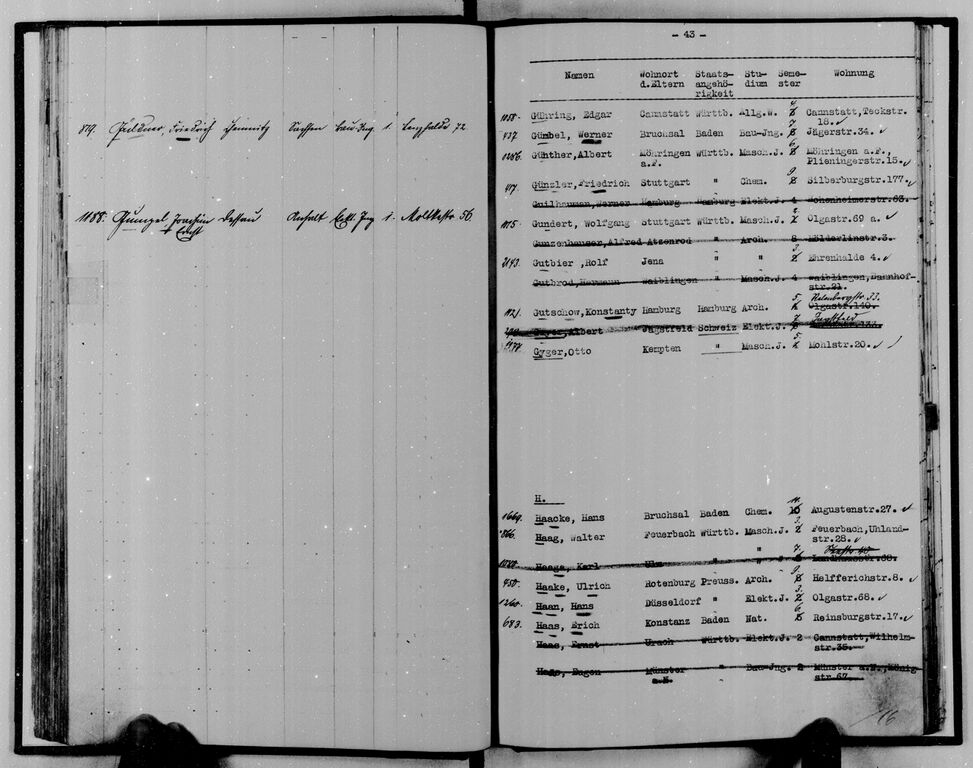 819. Friedrich Chemnitz Sachsen Bau-Ing. 1. 72
1188. Joachim Dessau Anhalt Elekt. Ing 1. Moltkestr. 56
- 43 -
Namen Wohnort Staats- Stu- Seme- Wohnung
d.Eltern angehö- dium ster
rigkeit
1058. Gühring, Edgar Cannstatt Württb. Allg.W. 4 Cannstatt,Teckstr.
18. ✓
737. Gümbel, Werner Bruchsal Baden Bau-Jng. 7 Jägerstr.34. ✓
1286. Günther,Albert Möhringen Württb. Masch.J. 6 Möhringen a.F.,
a.F. Plieningerstr.15. ✓
417. Günzler,Friedrich Stuttgart " Chem. 9 Silberburgstr.177. ✓
Guilhauman,Werner Hamburg Hamburg Elekt.J. 4 Hohenheimerstr.63.
1175. Gundert, Wolfgang Stuttgart Württb. Masch.J. 2 Olgastr.69 a. ✓
Gunzenhauser,Alfred Atzenrod " Arch. 8 Hölderlinstr.3.
2143. Gutbier ,Rolf Jena " " 3. Ehrenhalde 4. ✓
Gutbrod,Hermann Waiblingen " Masch.J. 4 Waiblingen,Bahnhof-
str.21.
1121. Gutschow,Konstanty Hamburg Hamburg Arch. 5. Helenbergstr. 33
Olgastr.140.
Gyger,Albert Jagstfeld Schweiz Elekt.J. 7
1177. Gyger,Otto Kempten " Masch.J. 5. Mohlstr.20. ✓
H.
1669. Haacke, Hans Bruchsal Baden Chem. 11. Augustenstr.27. ✓
866. Haag, Walter Feuerbach Württb. Masch.J. 3. Feuerbach,Uhland-
str.28. ✓
Haaga, Karl Ulm " " 7. Landhausstr.68.
450. Haake, Ulrich Rotenburg Preuss. Arch. 9. Helfferichstr.8. ✓
1260. Haan, Hans Düsseldorf " Elekt.J. 3. Olgastr.68. ✓
683. Haas, Erich Konstanz Baden Nat. 6 Reinsburgstr.17. ✓
Haas, Ernst Urach Württb. Elekt.J. 2 Cannstatt,Wilhelm-
str.35.
Haas, Eugen Münster " Bau-Jng. 2 Münster a.N.,König
a.N. str.67.
16